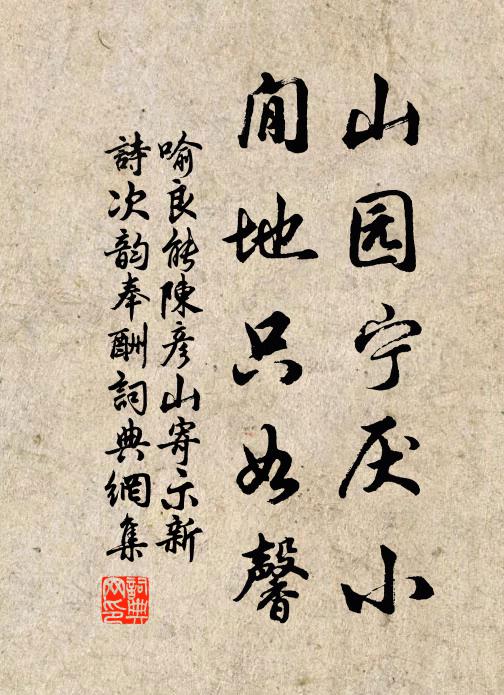 山园宁厌小
閒地只如馨
喻良能陳彦山寄示新
詩次韵奉酬詞典網集
詞典
网印